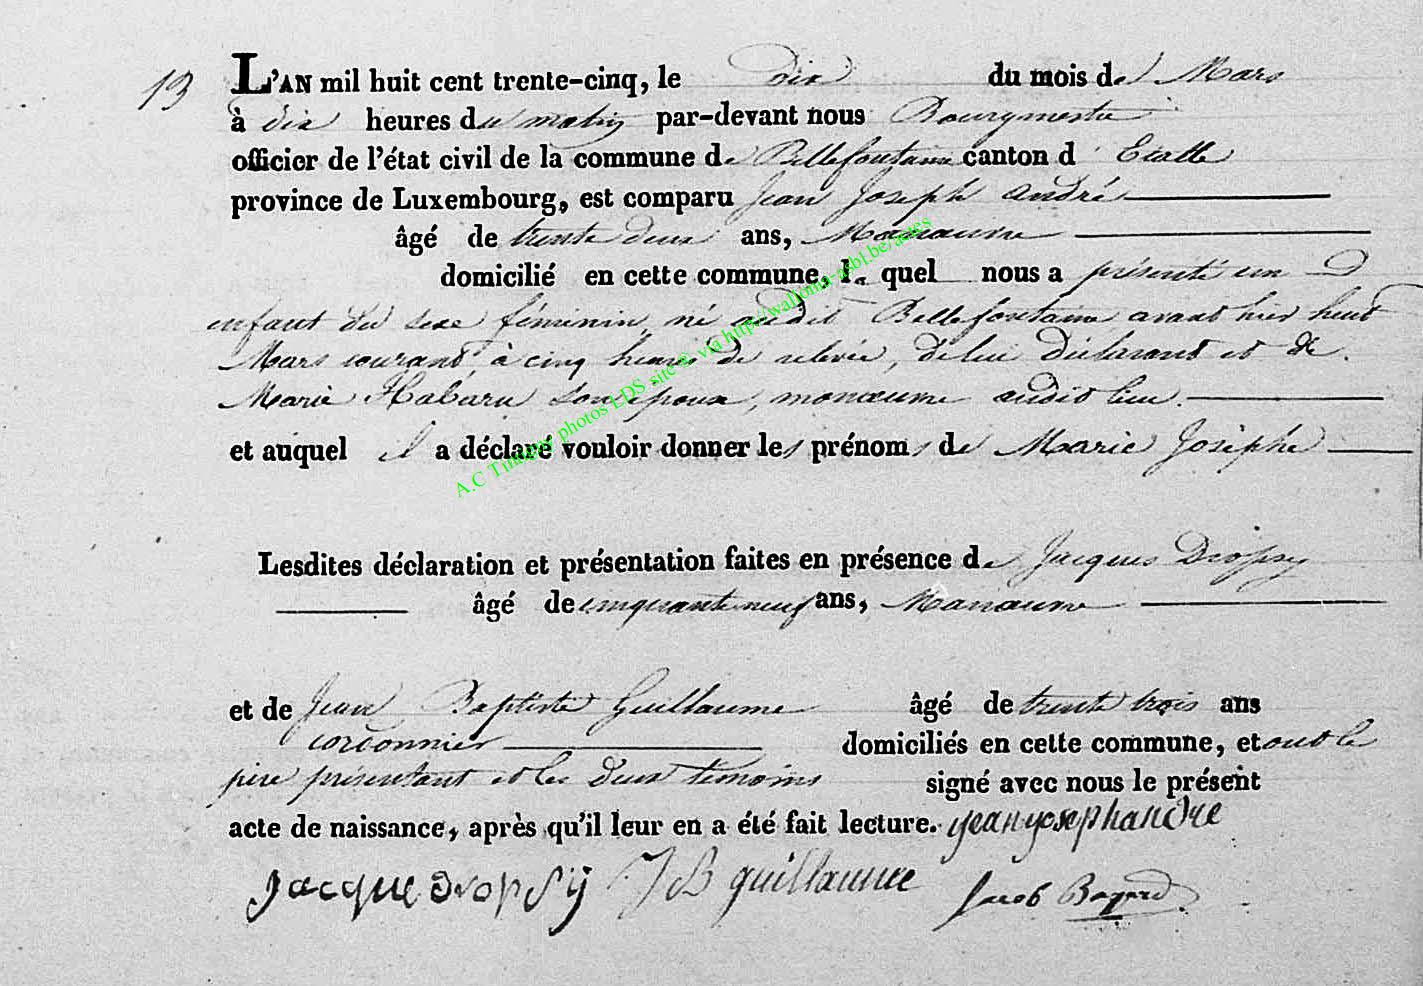 13 L'AN mil huit cent trente-cinq, le dix du mois de Mars
à dix heures du matin par-devant nous Bourgmestre
officier de l'état civil de la commune de Bellefontaine canton d'Etalle
province de Luxembourg, est comparu Jean Joseph andré
âgé de trente deux ans, Manœuvre
domicilié en cette commune, le quel nous a présenté un
enfant du sexe féminin, né audit Bellefontaine avant hier huit
Mars courant, à cinq heures de relevée, de lui déclarant et de
Marie Habaru son épouse, manœuvre audit lieu.
et auquel il a déclaré vouloir donner les prénoms de Marie Josèphe
Lesdites déclaration et présentation faites en présence de Jacques Dropsy
âgé de cinquante neuf ans, Manœuvre
et de Jean Baptiste Guillaume âgé de trente trois ans
cordonnier domiciliés en cette commune, et ont le
père présentant et les deux témoins signé avec nous le présent
acte de naissance, après qu'il leur en a été fait lecture. jean josephandre
jacque Dropsy J B guillaume Jacob
A.C Tintigny photos LDS site & via http://wallonia-asbl.be/actes